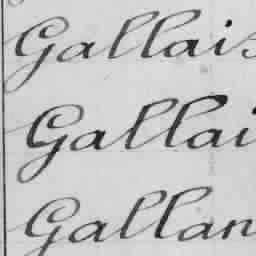 Gallais
Gallai
Gallan